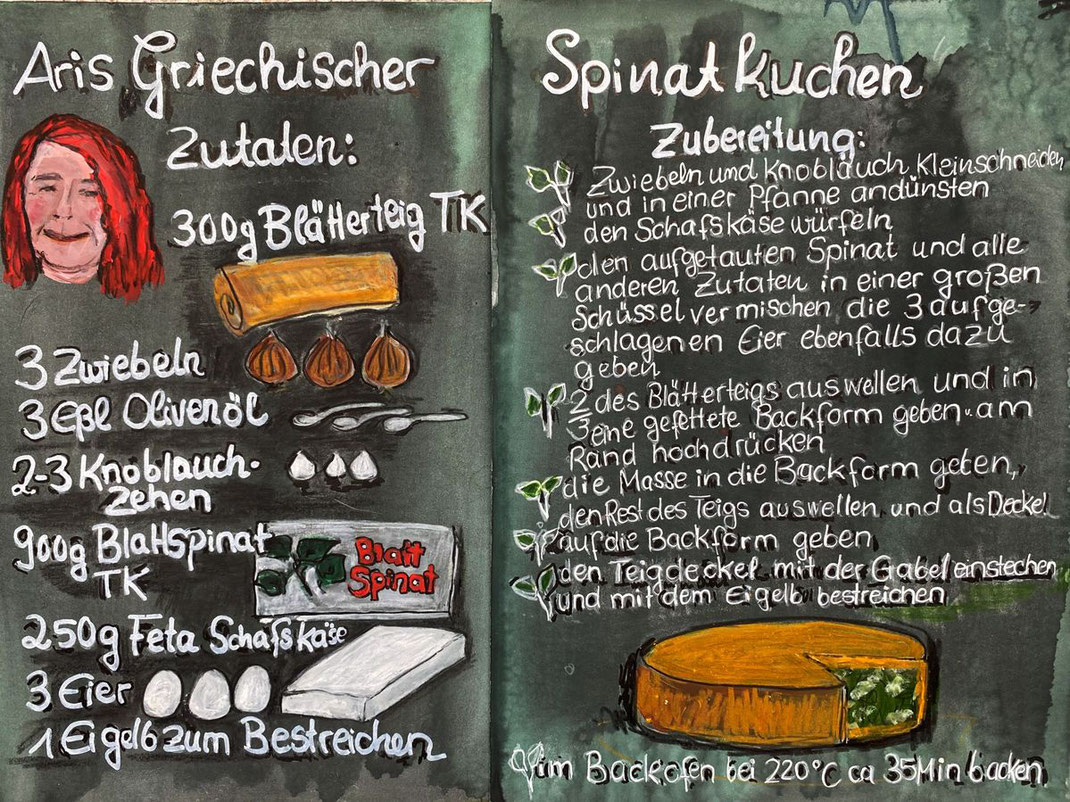 Aris Griechischer
Zutaten:
300g Blätterteig TK
3 Zwiebeln
3 Eßl Olivenöl
2-3 Knoblauch-
zehen
900g Blattspinat
TK
Blatt
Spinat
250g Feta Schafskäse
3 Eier
1 Eigelb zum Bestreichen
Spinatkuchen
Zubereitung:
Zwiebeln und Knoblauch kleinschneiden
und in einer Pfanne andünsten
den Schafskäse würfeln
den aufgetauten Spinat und alle
anderen Zutaten in einer großen
Schüssel vermischen, die 3 aufge-
schlagenen Eier ebenfalls dazu
geben
2/3 des Blätterteigs auswellen und in
eine gefettete Backform geben u. am
Rand hochdrücken
die Masse in die Backform geben,
den Rest des Teigs auswellen und als Deckel
auf die Backform geben
den Teigdeckel mit der Gabel einstechen
und mit dem Eigelb bestreichen
im Backofen bei 220°C ca 35 Min backen